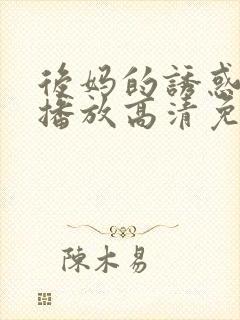 後妈的誘惑
播放高清免
陳木易